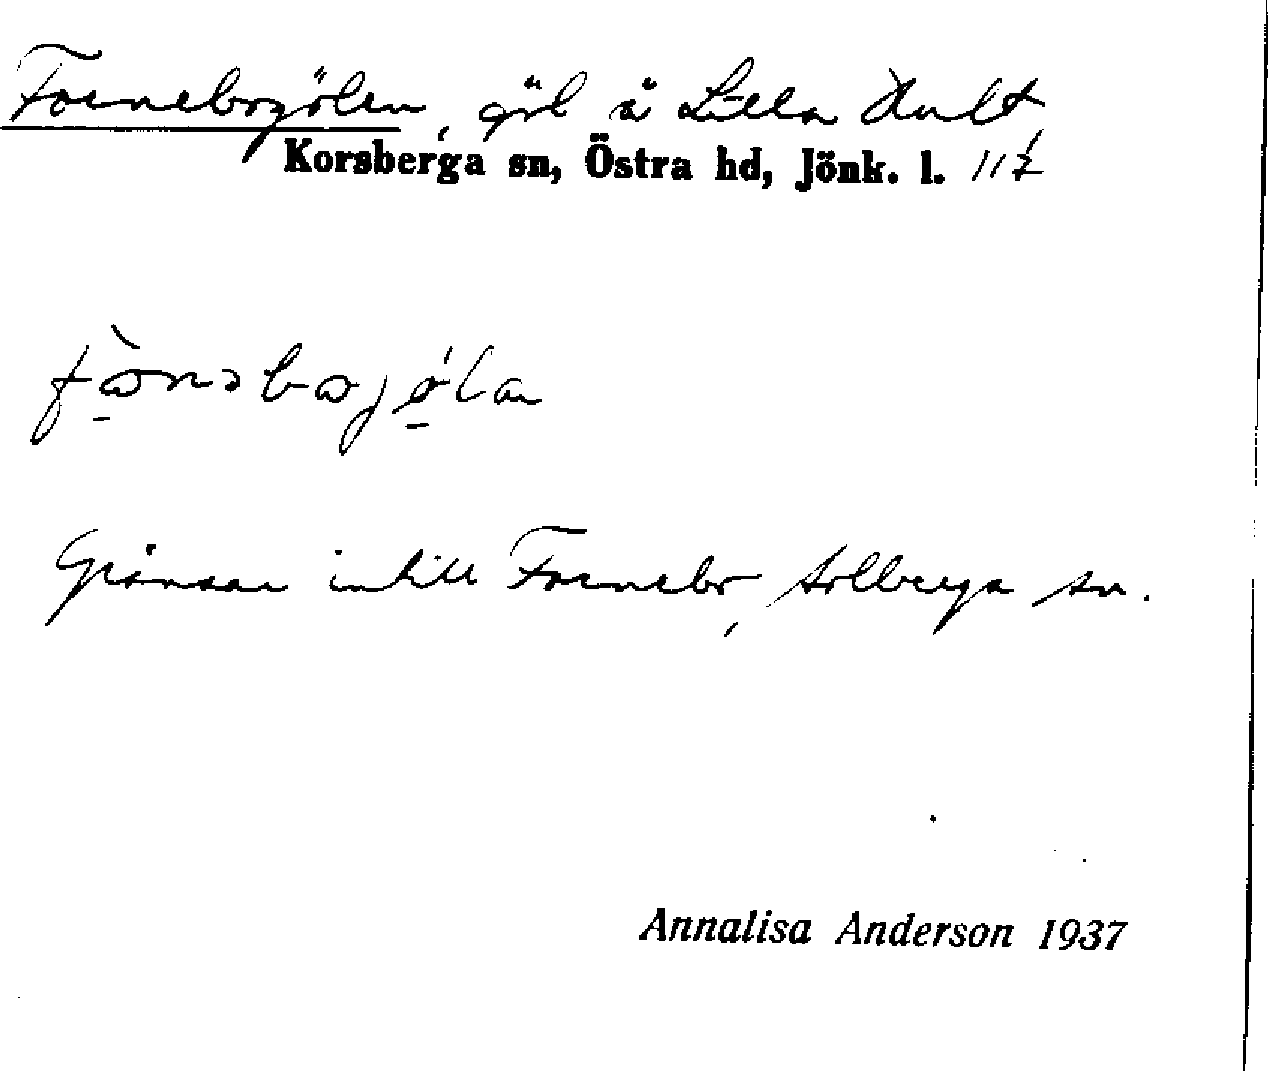 Fornebogölen, göl å Lilla Hult,
Korsberga sn, Östra hd, Jönk. l.
Gränsar intill Fornebo, Solberga sn.
Annalisa Anderson 1937